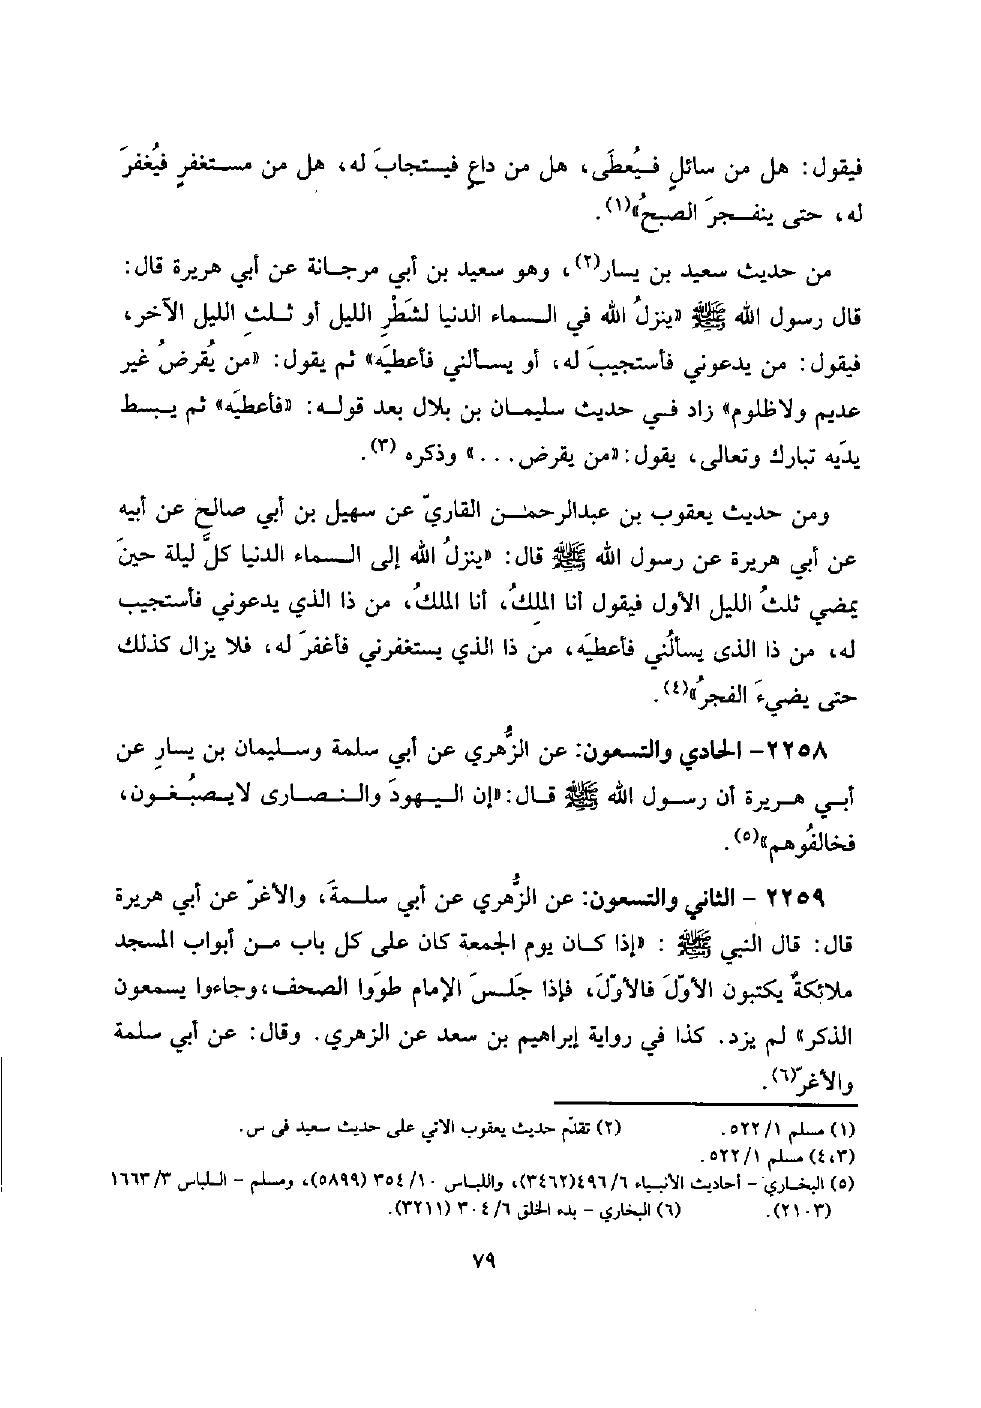 فيقول: هل من سائلٍ فيُعطَى، هل من داعٍ فيستجابَ له، هل من مستغفرٍ فيُغفرَ
له، حتى ينفجرَ الصبحُ»(١).
من حديث سعيد بن يسار(٢)، وهو سعيد بن أبي مرجانة عن أبي هريرة قال:
قال رسول الله ﷺ «ينزلُ الله في السماء الدنيا لشَطْرِ الليل أو ثلثِ الليل الآخر،
فيقول: من يدعوني فأستجيبَ له، أو يسألني فأعطيَه» ثم يقول: «من يُقرضُ غير
عديم ولاظلوم» زاد في حديث سليمان بن بلال بعد قوله: «فأعطيَه» ثم يبسط
يدَيه تبارك وتعالى، يقول: «من يقرض...» وذكره (٣).
ومن حديث يعقوب بن عبدالرحمٰن القاريّ عن سهيل بن أبي صالح عن أبيه
عن أبي هريرة عن رسول الله ﷺ قال: «ينزلُ الله إلى السماء الدنيا كلَّ ليلة حينَ
يمضي ثلثُ الليل الأول فيقول أنا الملِكُ، أنا الملكُ، من ذا الذي يدعوني فأستجيب
له، من ذا الذى يسألُني فأعطيَه، من ذا الذي يستغفرني فأغفرَ له، فلا يزال كذلك
حتى يضيءَ الفجرُ»(٤).
٢٢٥٨- الحادي والتسعون: عن الزُّهري عن أبي سلمة وسليمان بن يسارٍ عن
أبي هريرة أن رسول الله ﷺ قال: «إن اليهودَ والنصارى لايصبُغون،
فخالفُوهم»(٥).
٢٢٥٩ - الثاني والتسعون: عن الزُّهري عن أبي سلمةَ، والأغرّ عن أبي هريرة
قال: قال النبي ﷺ : «إذا كان يوم الجمعة كان على كل باب من أبواب المسجد
ملائكةٌ يكتبون الأوّلَ فالأوّلَ، فإذا جَلَسَ الإمام طوَوا الصحف، وجاءوا يسمعون
الذكر» لم يزد. كذا في رواية إبراهيم بن سعد عن الزهري. وقال: عن أبي سلمة
والأغرّ(٦).
(١) مسلم ١/ ٥٢٢. (٢) تقدّم حديث يعقوب الآتي على حديث سعيد في س.
(٣،٤) مسلم ١/ ٥٢٢.
(٥) البخاري - أحاديث الأنبياء ٦/ ٤٩٦(٣٤٦٢)، واللباس ١٠/ ٣٥٤ (٥٨٩٩)، ومسلم - اللباس ٣/ ١٦٦٣
(٢١٠٣). (٦) البخاري - بدء الخلق ٦/ ٣٠٤ (٣٢١١).
٧٩